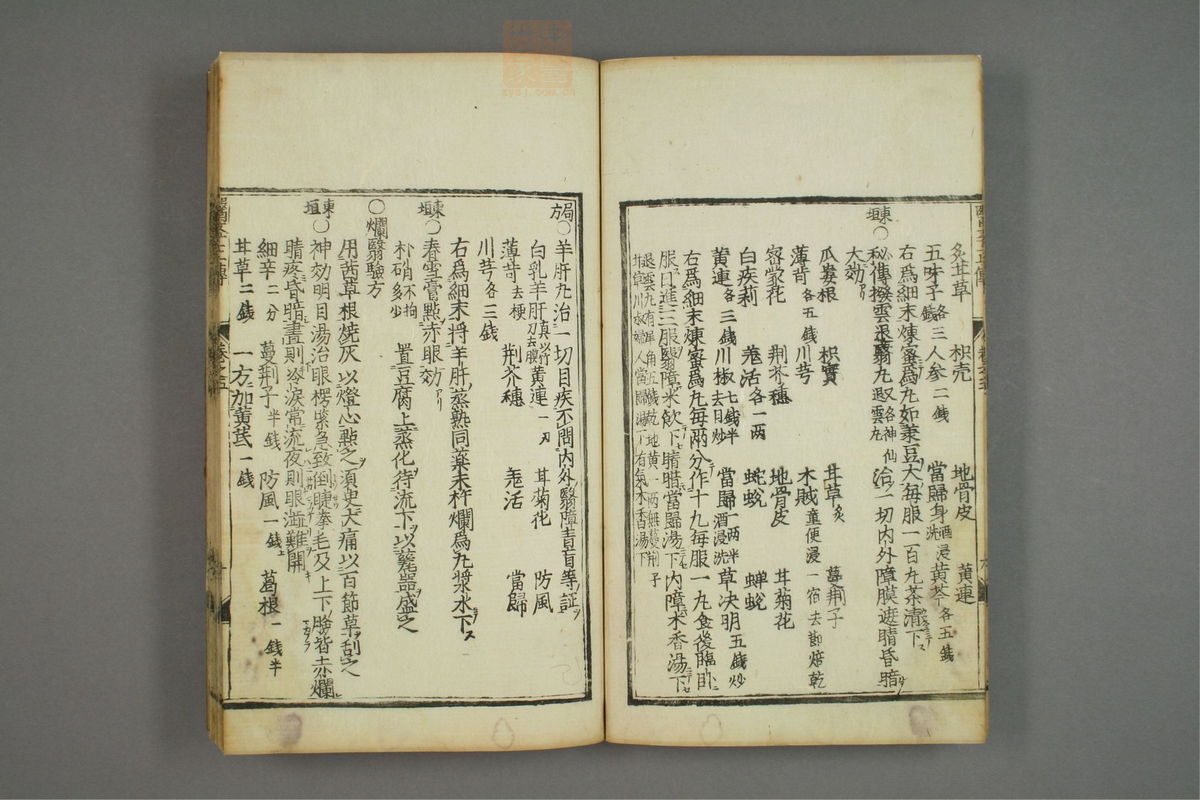 炙甘草 枳壳 地骨皮 黄連
五味子各三錢 人参二錢 當歸身酒浸洗 黄芩各五錢
右為細末煉蜜為丸如菉豆大每服一百丸茶清下
東垣 〇秘傳撥雲退翳丸又名神仙退雲丸 治一切内外障膜遮睛昏暗
大効
瓜蔞根 枳實 甘草炙 蔓荆子
薄苛各五錢 川芎 木賊童便浸一宿去節焙乾
密蒙花 荆芥穗 地骨皮 甘菊花
白疾莉 羗活各一两 蛇蛻 蟬蛻
黄連各三錢 川椒七錢半去目炒 當歸一两半酒浸洗 草决明五錢炒
右為細末煉蜜為丸每两分作十丸每服一丸食後臨卧
服日進三服翳障米飲下睛暗當歸湯下内障木香湯下
局方 〇羊肝丸治一切目疾不問内外翳障青盲等証
白乳羊肝 黄連一刄 甘菊花 防風
薄苛去梗 荆芥穗 羗活 當歸
川芎各三錢
右為細末將羊肝蒸熟同藥末杵爛為丸漿水下
東垣 〇春雪膏點赤眼効
朴硝不拘多少 置豆腐上蒸化待流下以甆器盛之
〇爛翳驗方
用茜草根燒灰以燈心點之須臾大痛以百節草刮之
東垣 〇神効明目湯治眼楞緊急致倒睫拳毛及上下瞼皆赤爛
睛疼昏暗晝則冷淚常流夜則眼澁難開
細辛二分 蔓荆子半錢 防風一錢 葛根一錢半
甘草二錢 一方加黄芪一錢